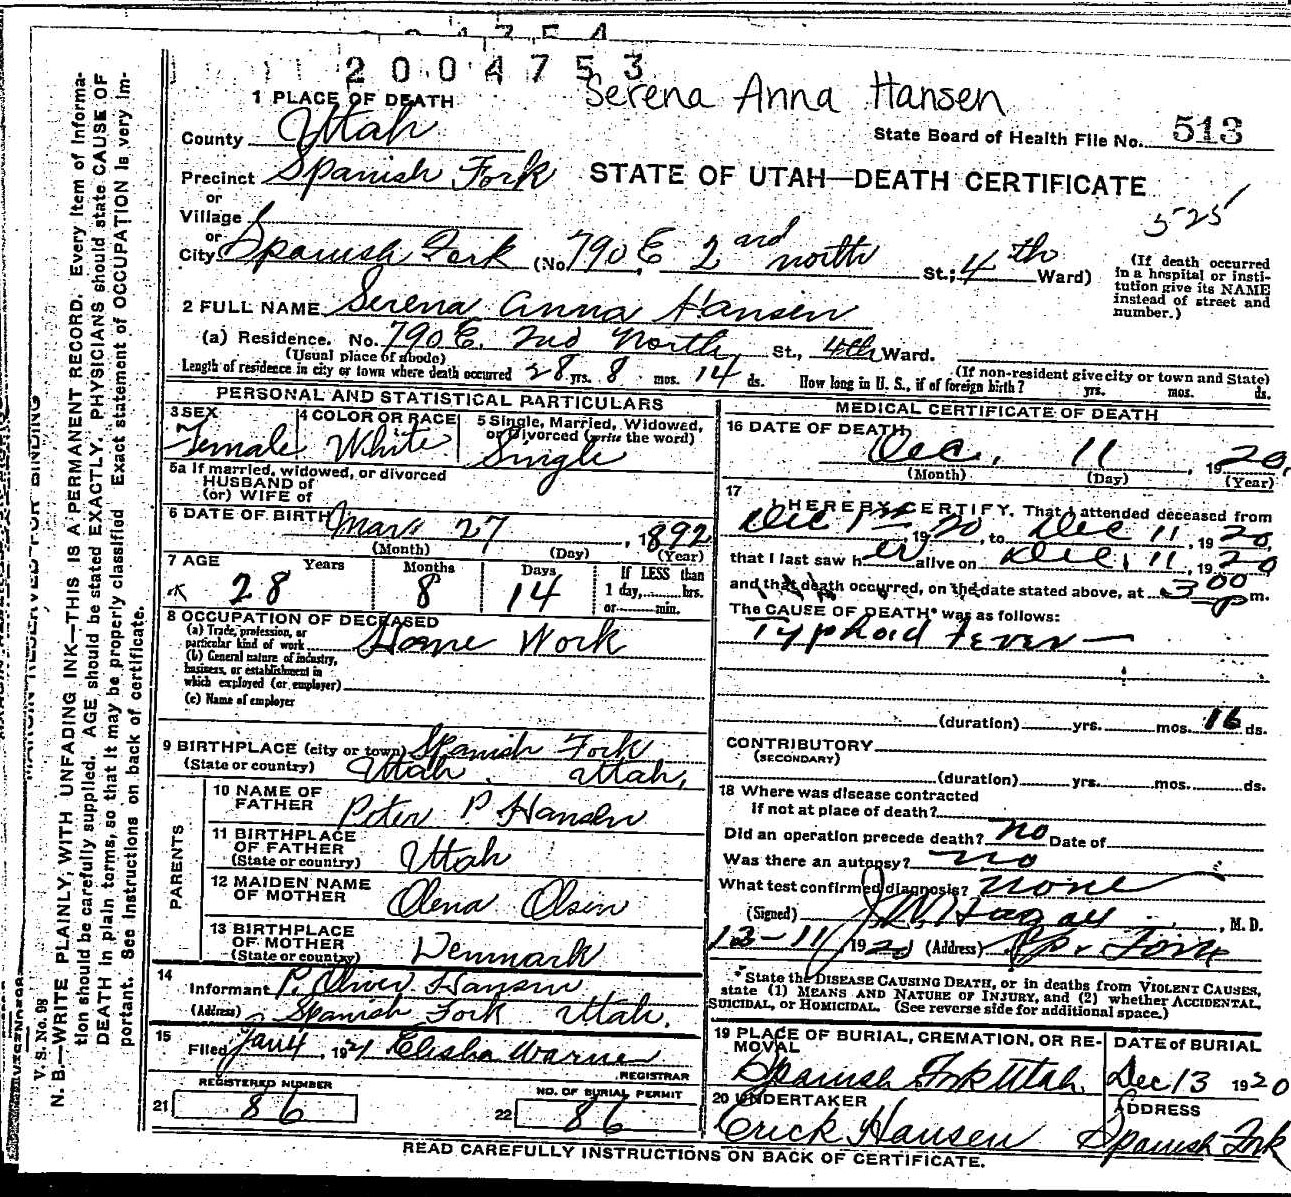 2004753
Serena Anna Hansen
1 PLACE OF DEATH
County Utah
State Board of Health File No. 513
Precinct Spanish Fork
STATE OF UTAH—DEATH CERTIFICATE
or
Village
525
or
City Spanish Fork (No. 790 E 2nd north St.; 4th Ward)
(If death occurred in a hospital or institution give its NAME instead of street and number.)
2 FULL NAME Serena Anna Hansen
(a) Residence. No. 790 E. 2nd North St., 4th Ward.
(Usual place of abode)
(If non-resident give city or town and State)
Length of residence in city or town where death occurred 28 yrs. 8 mos. 14 ds. How long in U. S., if of foreign birth? yrs. mos. ds.
PERSONAL AND STATISTICAL PARTICULARS
3 SEX
Female
4 COLOR OR RACE
White
5 Single, Married, Widowed, or Divorced (write the word)
Single
5a If married, widowed, or divorced
HUSBAND of
(or) WIFE of
6 DATE OF BIRTH Mar. 27, 1892
(Month) (Day) (Year)
7 AGE
Years Months Days If LESS than
28 8 14 1 day,......hrs.
or......min.
8 OCCUPATION OF DECEASED
(a) Trade, profession, or particular kind of work Home Work
(b) General nature of industry, business, or establishment in which employed (or employer)
(c) Name of employer
9 BIRTHPLACE (city or town) Spanish Fork
(State or country) Utah, Utah,
PARENTS
10 NAME OF FATHER Peter P Hansen
11 BIRTHPLACE OF FATHER (State or country) Utah
12 MAIDEN NAME OF MOTHER Olena Olsen
13 BIRTHPLACE OF MOTHER (State or country) Denmark
14
Informant P. Oliver Hansen
(Address) Spanish Fork Utah.
15
Filed Jan 4, 1921 Elisha Warner
REGISTRAR
REGISTERED NUMBER
21 86
NO. OF BURIAL PERMIT
22 86
MEDICAL CERTIFICATE OF DEATH
16 DATE OF DEATH
Dec. 11, 1920.
(Month) (Day) (Year)
17
I HEREBY CERTIFY, That I attended deceased from
Dec 1st 1920, to Dec 11, 1920,
that I last saw her alive on Dec. 11, 1920
and that death occurred, on the date stated above, at 3 00 p m.
The CAUSE OF DEATH* was as follows:
Typhoid Fever
(duration) yrs. mos. 16 ds.
CONTRIBUTORY
(SECONDARY)
(duration) yrs. mos. ds.
18 Where was disease contracted
if not at place of death?
Did an operation precede death? no Date of
Was there an autopsy? no
What test confirmed diagnosis? none
(Signed) , M. D.
1920 (Address) Sp. Fork
*State the DISEASE CAUSING DEATH, or in deaths from VIOLENT CAUSES, state (1) MEANS AND NATURE OF INJURY, and (2) whether ACCIDENTAL, SUICIDAL, or HOMICIDAL. (See reverse side for additional space.)
19 PLACE OF BURIAL, CREMATION, OR REMOVAL
Spanish Fork Utah
DATE of BURIAL
Dec 13 1920
20 UNDERTAKER
Erick Hansen
ADDRESS
Spanish Fork
READ CAREFULLY INSTRUCTIONS ON BACK OF CERTIFICATE.
V. S. No. 98
N. B.—WRITE PLAINLY, WITH UNFADING INK—THIS IS A PERMANENT RECORD. Every item of information should be carefully supplied. AGE should be stated EXACTLY. PHYSICIANS should state CAUSE OF DEATH in plain terms, so that it may be properly classified. Exact statement of OCCUPATION is very important. See instructions on back of certificate.